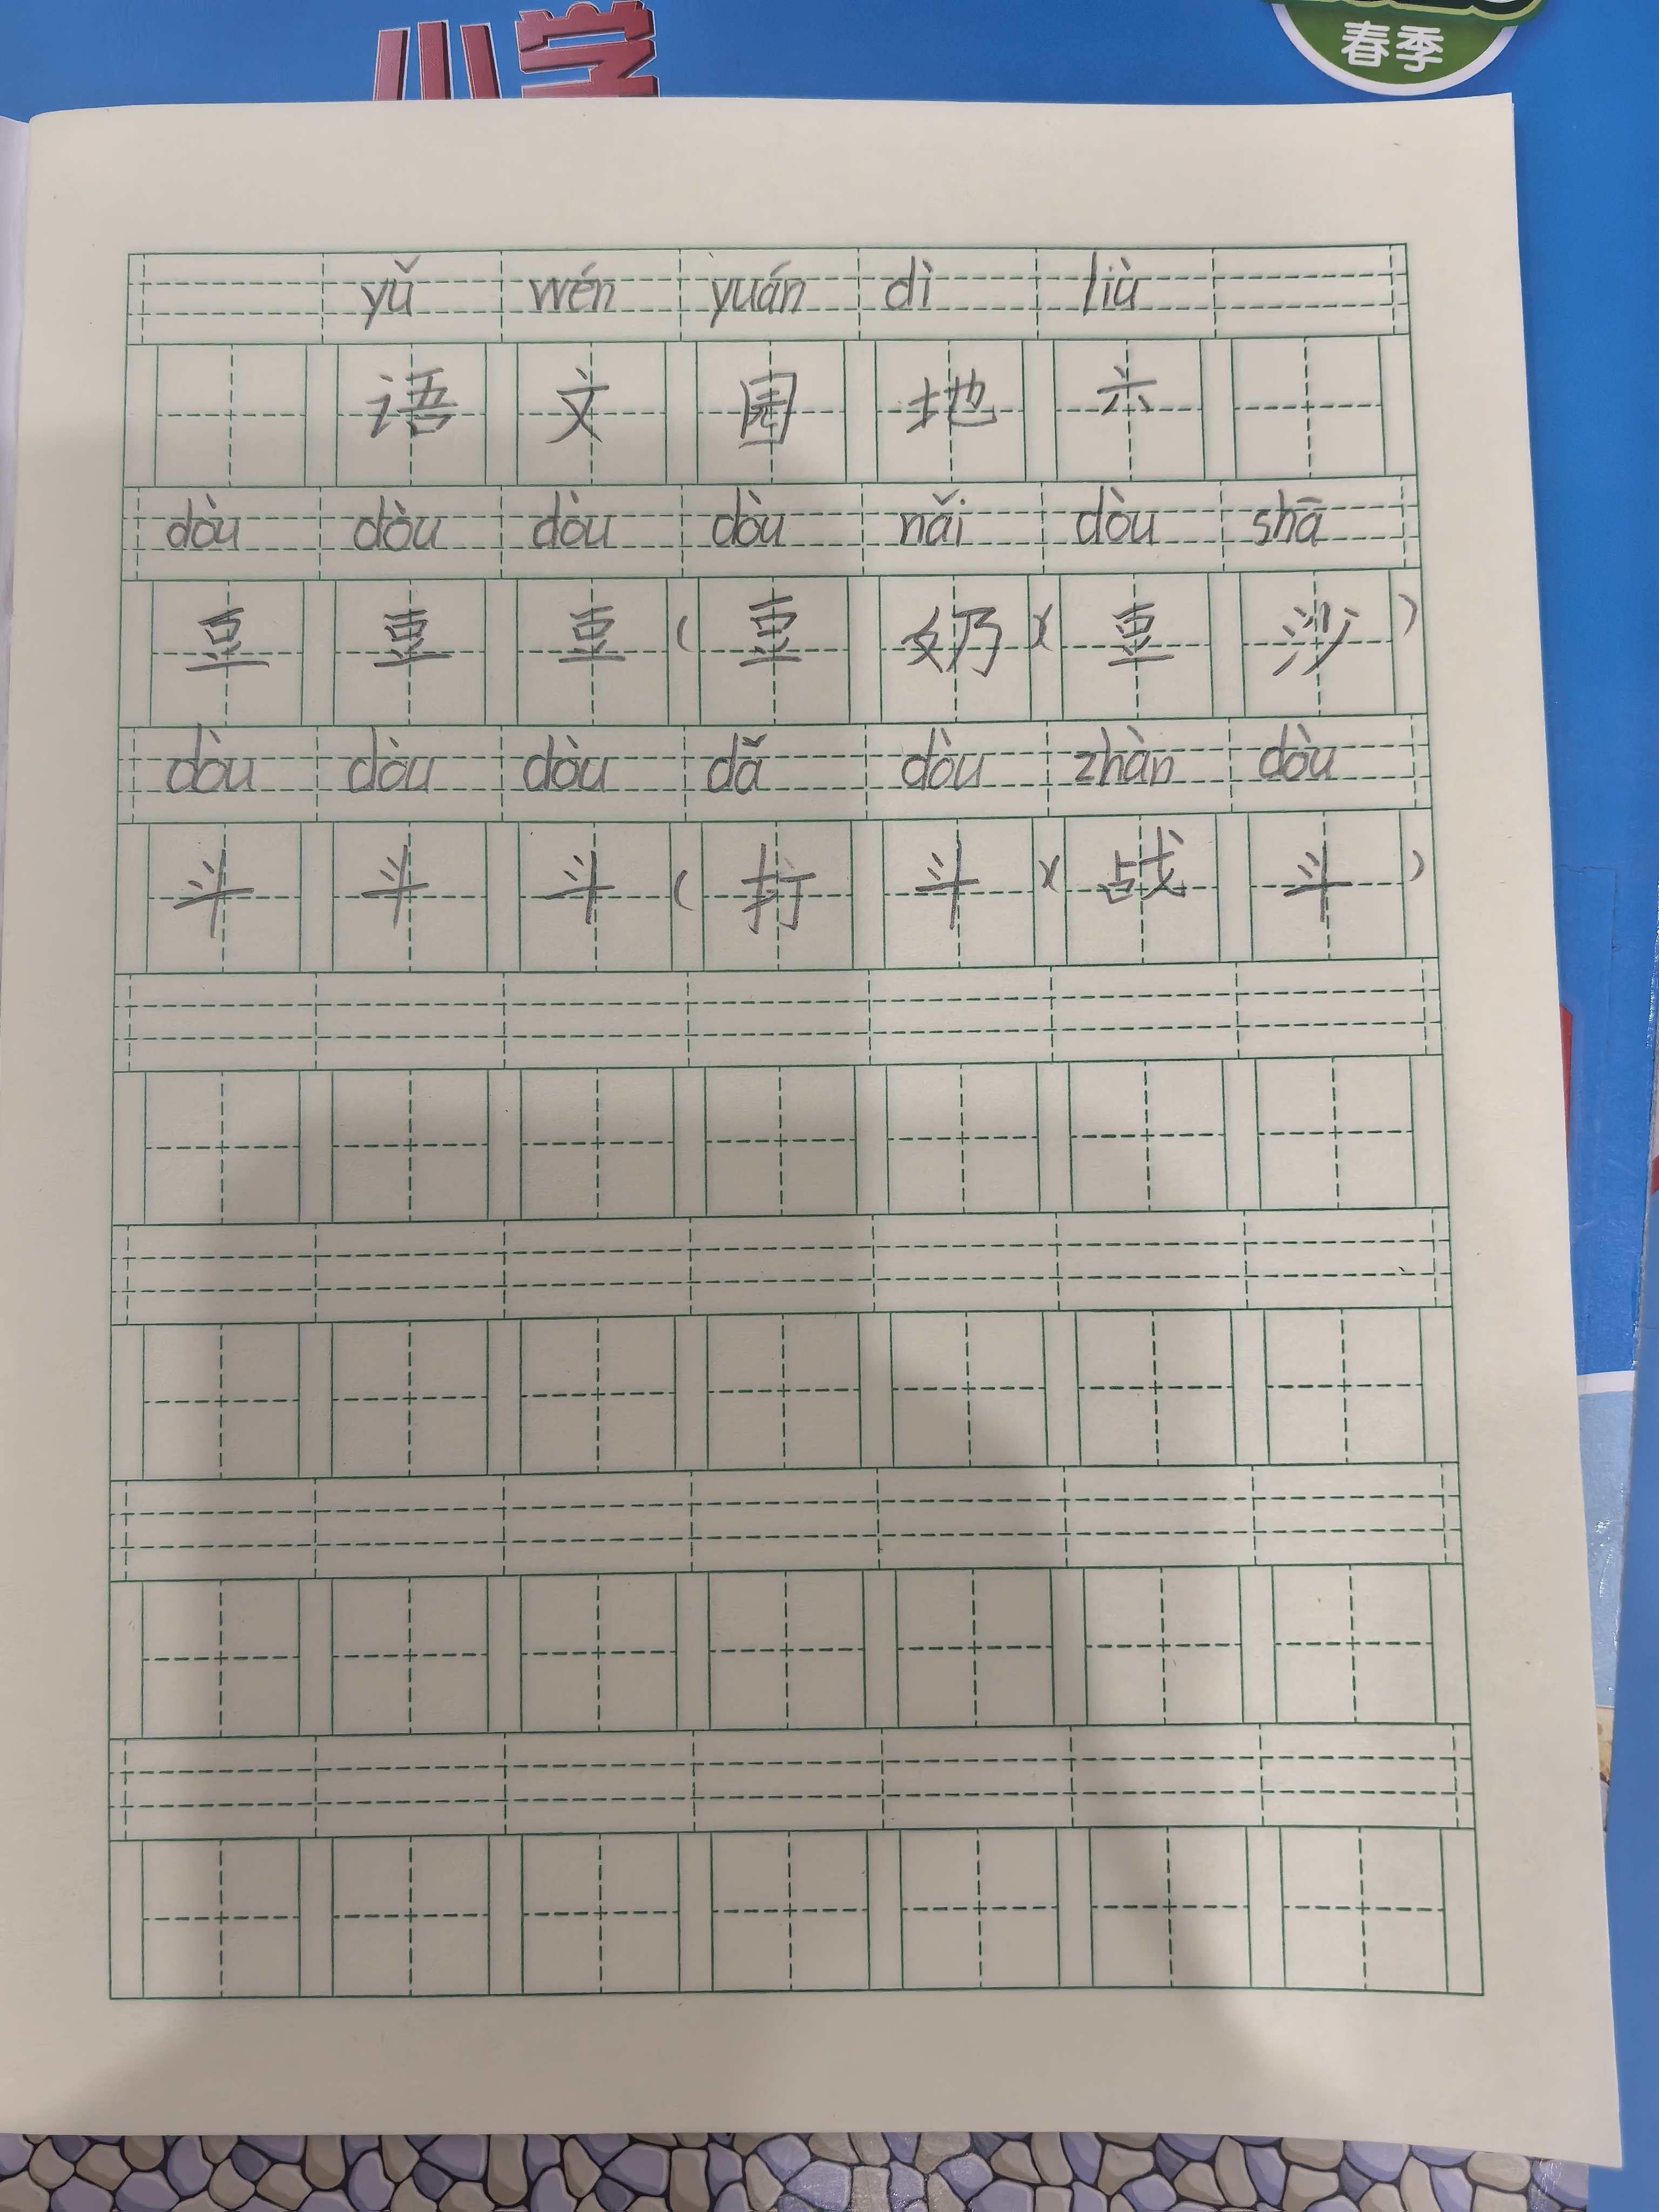 小学
春季
yǔ wén yuán dì liù
语 文 园 地 六
dòu dòu dòu dòu nǎi dòu shā
豆 豆 豆 ( 豆 奶 )( 豆 沙 )
dòu dòu dòu dǎ dòu zhàn dòu
斗 斗 斗 ( 打 斗 )( 战 斗 )